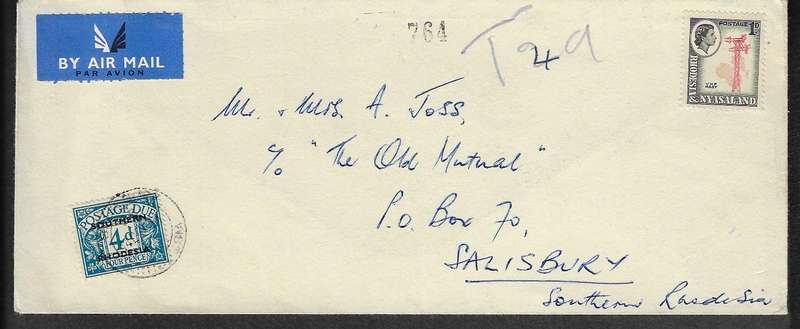 BY AIR MAIL
PAR AVION
764
T 4d
POSTAGE 1D
RHODESIA & NYASALAND
Mr. & Mrs A. Joss,
c/o "The Old Mutual"
P.O. Box 70,
SALISBURY
Southern Rhodesia
POSTAGE DUE
SOUTHERN
4d
RHODESIA
FOUR PENCE